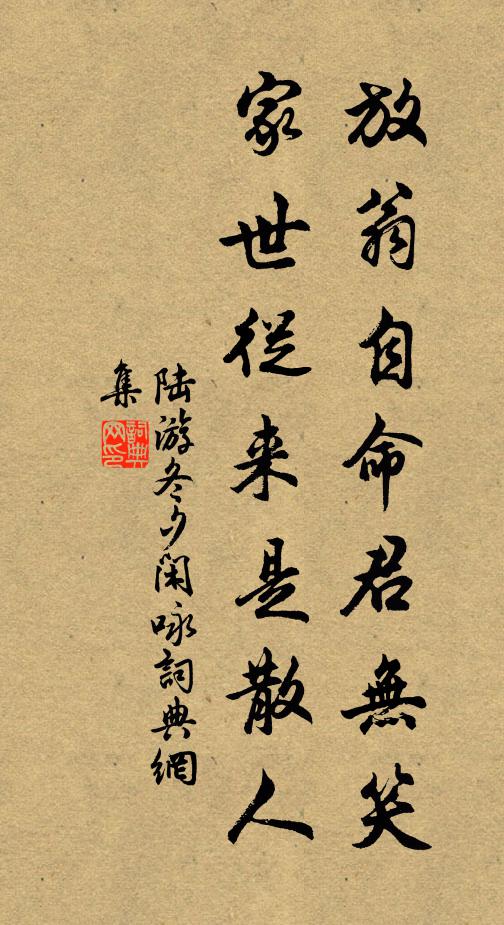 放翁自命君無笑
家世從来是散人
陆游冬夕闲咏詞典網
集
詞典网印